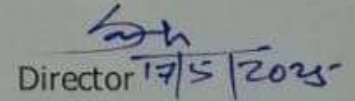 Director 17/5/2025